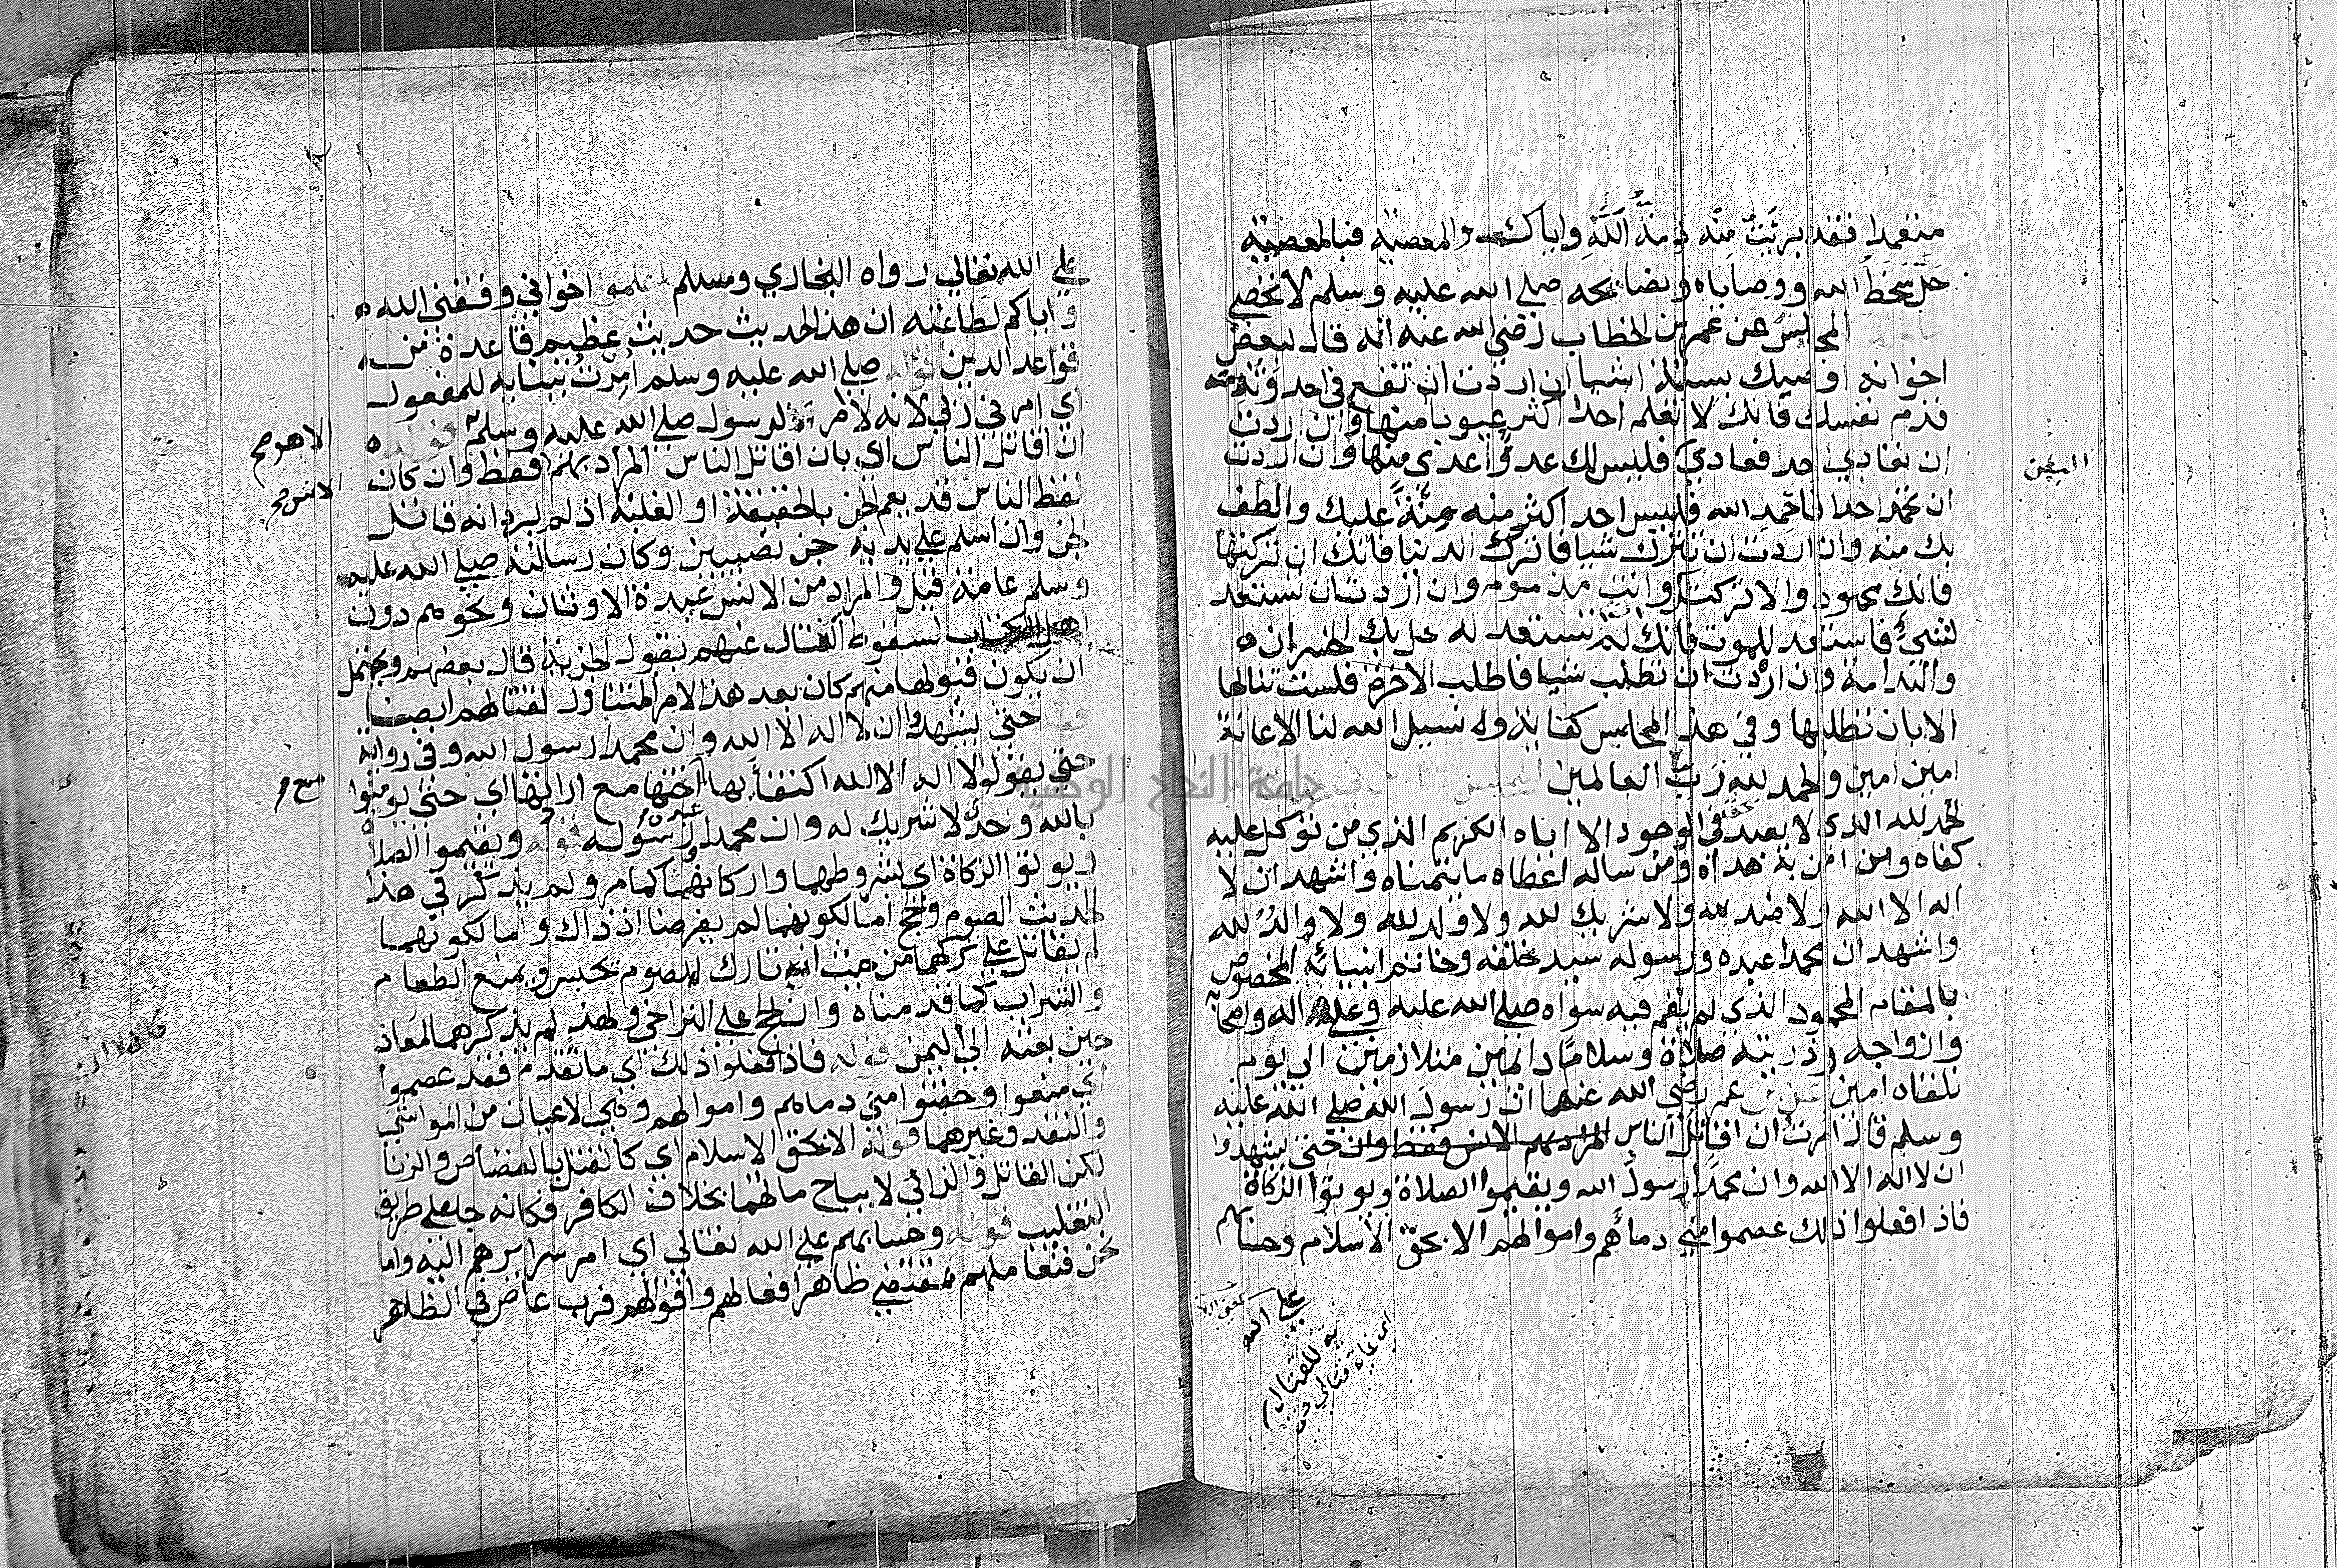 متعمدا فقد برئت منه ذمة الله واياك والمعصية فبالمعصية
حل سخط الله ووصاياه ونصائحه صلي الله عليه وسلم لا تحصي
المجلس عن عمر بن الخطاب رضي الله عنه انه قال لبعض
اخوانه اوصيك بستة اشيا ان اردت ان تقع في احد وتذمه
فذم نفسك فانك لا تعلم احدا اكثر عيوبا منها وان اردت
ان تعادي احد فعادي فليس لك عدوا اعدي منها وان اردت
البطن
ان تحمد احدا فاحمد الله فليس احد اكثر منه منة عليك والطف
بك منه وان اردت ان تترك شيا فاترك الدنيا فانك ان تركتها
فانك محمود والا تركتك وانت مذموم وان اردت ان تستعد
لشيء فاستعد للموت فانك ان لم تستعد له حل بك الخسران
والندامة وان اردت ان تطلب شيا فاطلب الاخرة فلست تنالها
الا بان تطلبها وفي هذه المجالس كفاية ونسيل الله لنا الاعانة
امين امين والحمد لله رب العالمين المجلس
الحمد لله الذي لا يعبد في الوجود الا اياه الكريم الذي من توكل عليه
كفاه ومن امن به هداه ومن ساله اعطاه ما يتمناه واشهد ان لا
اله الا الله ولا ضد لله ولا شريك لله ولا ولد لله ولا والد لله
واشهد ان محمدا عبده ورسوله سيد خلقه وخاتم انبيائه المخصوص
بالمقام المحمود الذي لم يقم فيه سواه صلي الله عليه وعلي اله واصحابه
وازواجه وذريته صلاة وسلاما دائمين متلازمين الي يوم
نلقاه امين عن ابن عمر رضي الله عنهما ان رسول الله صلي الله عليه
وسلم قال امرت ان اقاتل الناس المراد بهم الانس فقط وان حتي يشهدوا
ان لا اله الا الله وان محمدا رسول الله ويقيموا الصلاة ويوتوا الزكاة
فاذا فعلوا ذلك عصموا مني دماهم واموالهم الا بحق الاسلام وحسابهم
علي الله
علي الله تعالي رواه البخاري ومسلم اعلموا اخواني وفقني الله
واياكم لطاعته ان هذا الحديث حديث عظيم قاعدة من
قواعد الدين قوله صلي الله عليه وسلم امرت ببنايه للمفعول
اي امرني ربي لانه لا امر لرسول صلي الله عليه وسلم قوله
الا هو صح
ان اقاتل الناس اي بان اقاتل الناس المراد بهم فقط وان كان
الانس صح
لفظ الناس قد يعم الجن بالحقيقة او الغلبة اذ لم يرد انه قاتل
الجن وان اسلم علي يديه جن نصيبين وكان رسالته صلي الله عليه
وسلم عامة قيل والمراد من الانس عبدة الاوثان ونحوهم دون
اهل الكتاب لسقوط القتال عنهم بقبول الجزية قال بعضهم ويحتمل
ان يكون قبولها منهم كان بعد هذا الامر المتناول لقتالهم ايضا
قوله حتي يشهدوا ان لا اله الا الله وان محمد رسول الله وفي رواية
حتي يقولوا لا اله الا الله اكتفا بها اختها مع ارادتها اي حتي يومنوا
بالله وحده لا شريك له وان محمدا عبده ورسوله قوله ويقيموا الصلاة
ويوتوا الزكاة اي بشروطهما واركانهما كما مر ولم يذكر في هذا
الحديث الصوم والحج اما لكونهما لم يفرضا اذ ذاك واما لكونهما
لم يقاتل علي تركهما من حيث ان تارك الصوم يحبس ويمنع الطعام
والشراب كما قدمناه وان الحج علي التراخي ولهذا لم يذكرهما لمعاذ
حين بعثه الي اليمن قوله فاذا فعلوا ذلك اي ما تقدم فقد عصموا
اي منعوا وحقنوا مني دماهم واموالهم وهي الاعيان من المواشي
والنقد وغيرهما قوله الا بحق الاسلام اي كالقتل بالقصاص والزنا
لكن القاتل والزاني لا يباح مالهما بخلاف الكافر فكانه جا علي طريق
التغليب قوله وحسابهم علي الله تعالي اي امر سرايرهم اليه واما
نحن فنعاملهم بمقتضي ظاهر افعالهم واقوالهم فرب عاص في الظاهر